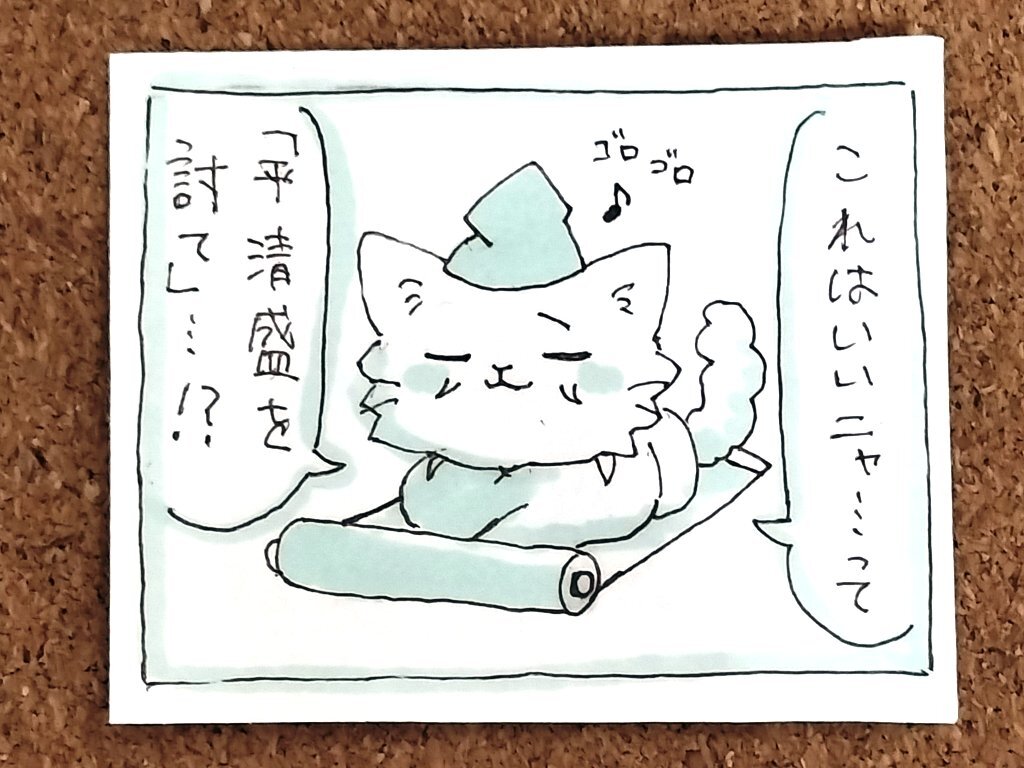 これはいいニャ…って
ゴロ
ゴロ
「平清盛を
討て」…!?